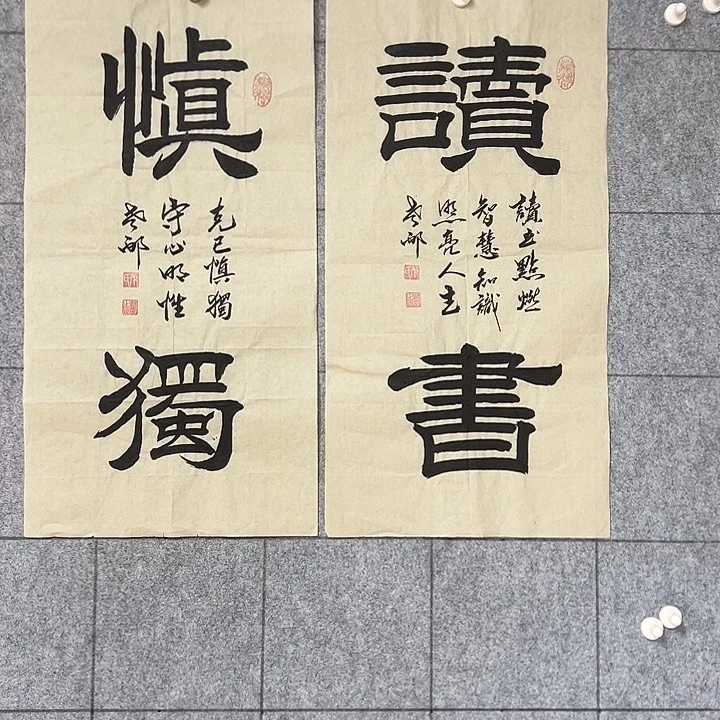 讀
讀书點燃
智慧知識
照亮人生
書
慎
克己慎獨
守心明性
獨